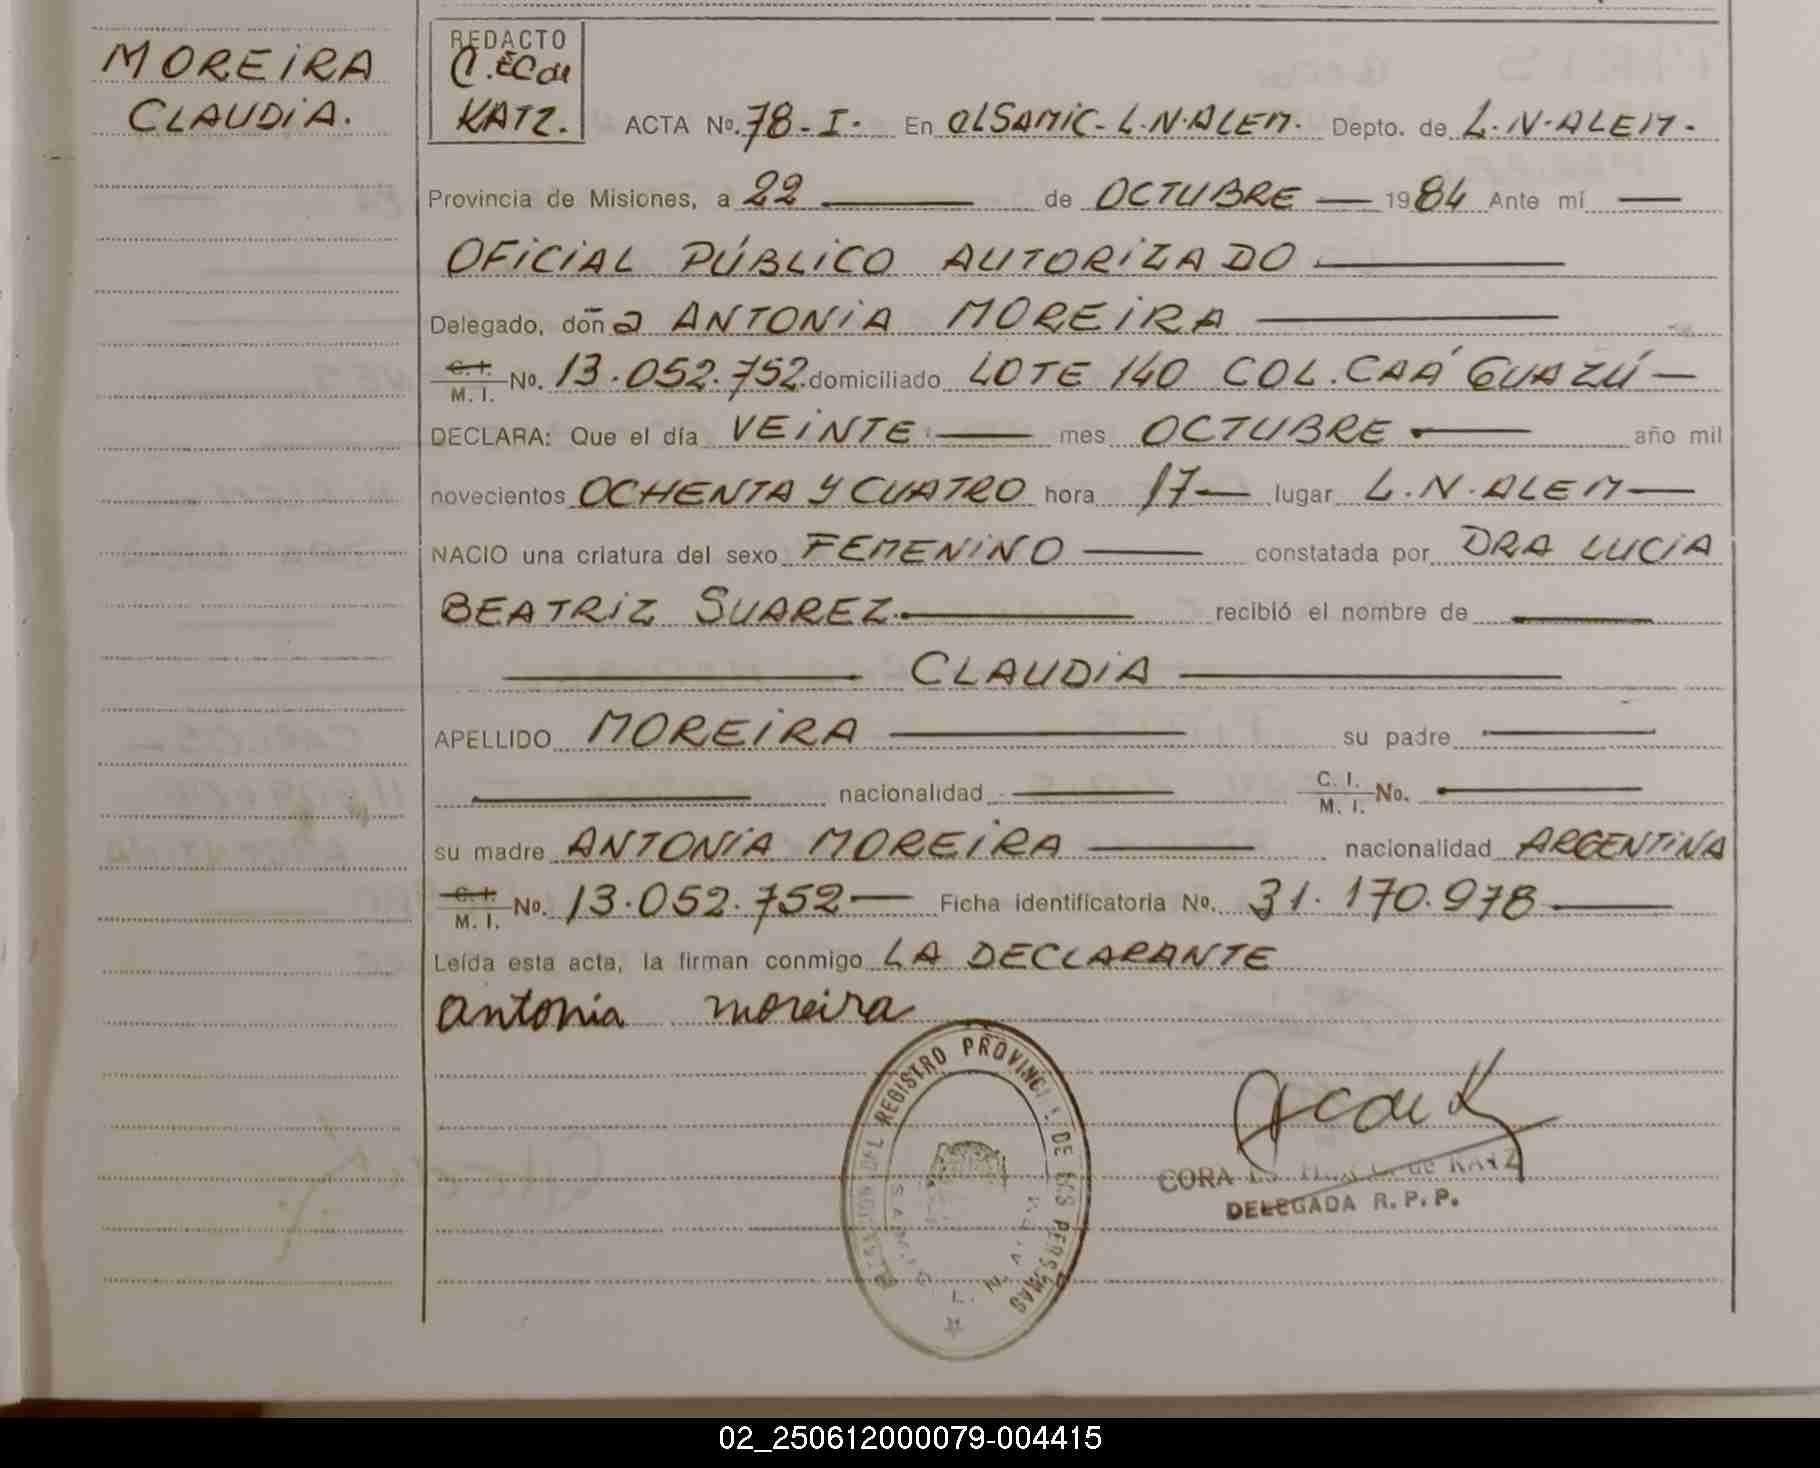 MOREIRA
CLAUDIA.
REDACTO
C. EC de
KATZ.
ACTA No. 78-I. En elSAMIC-L.N.ALEM. Depto. de L.N.ALEM-
Provincia de Misiones, a 22 —— de OCTUBRE — 1984 Ante mí —
OFICIAL PÚBLICO AUTORIZADO ——
Delegado, doña ANTONIA MOREIRA ——
C. I. M. I. No. 13.052.752. domiciliado LOTE 140 COL. CAÁ GUAZÚ —
DECLARA: Que el día VEINTE —— mes OCTUBRE —— año mil
novecientos OCHENTA Y CUATRO hora 17— lugar L.N.ALEM—
NACIO una criatura del sexo FEMENINO —— constatada por DRA LUCIA
BEATRIZ SUAREZ.—— recibió el nombre de ——
—— CLAUDIA ——
APELLIDO MOREIRA —— su padre ——
—— nacionalidad —— C. I. M. I. No. ——
su madre ANTONIA MOREIRA —— nacionalidad ARGENTINA
C. I. M. I. No. 13.052.752— Ficha identificatoria No. 31.170.978——
Leída esta acta, la firman conmigo LA DECLARANTE
Antonia moreira
DEL REGISTRO PROVINCIAL DE LAS PERSONAS
L. N. ALEM
CORA de KATZ
DELEGADA R.P.P.
02_250612000079-004415